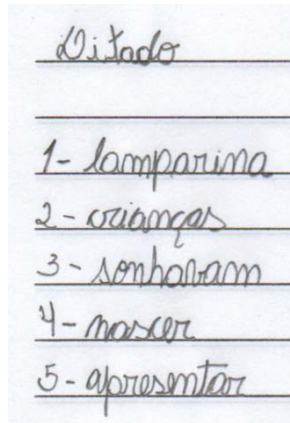 Ditado
1- lamparina
2- crianças
3- sonhavam
4- nascer
5- apresentar